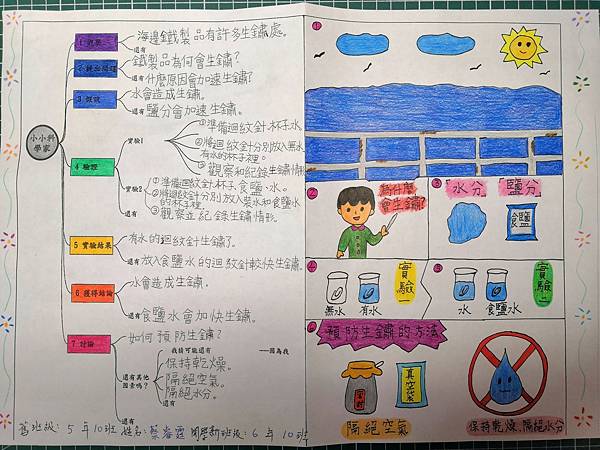 小小科學家
1 觀察
海邊鐵製品有許多生鏽處。
還有
2 提出問題
鐵製品為何會生鏽?
還有 什麼原因會加速生鏽?
3 假設
水會造成生鏽。
還有 鹽分會加速生鏽。
4 驗證
實驗1
①準備迴紋針、杯子、水
②將迴紋針分別放入無水、有水的杯子裡。
③觀察和紀錄生鏽情形
實驗2
①準備迴紋針、杯子、食鹽、水。
②將迴紋針分別放入裝水和食鹽水的杯子裡
③觀察並紀錄生鏽情形。
還有
5 實驗結果
有水的迴紋針生鏽了。
還有 放入食鹽水的迴紋針較快生鏽。
6 獲得結論
水會造成生鏽。
還有 食鹽水會加快生鏽。
7 討論
如何預防生鏽?
還有其他因素嗎?
我猜可能還有 ——因為我
保持乾燥。
隔絕空氣。
隔絕水分。
還有
還有
舊班級: 5 年 10 班 姓名: 開學新班級: 6 年 10 班
①
②
為什麼會生鏽?
③
「水分」「鹽分」
食鹽
④
實驗一
無水 有水
⑤
實驗二
水 食鹽水
⑥
預防生鏽的方法
真空袋
隔絕空氣
保持乾燥、隔絕水分